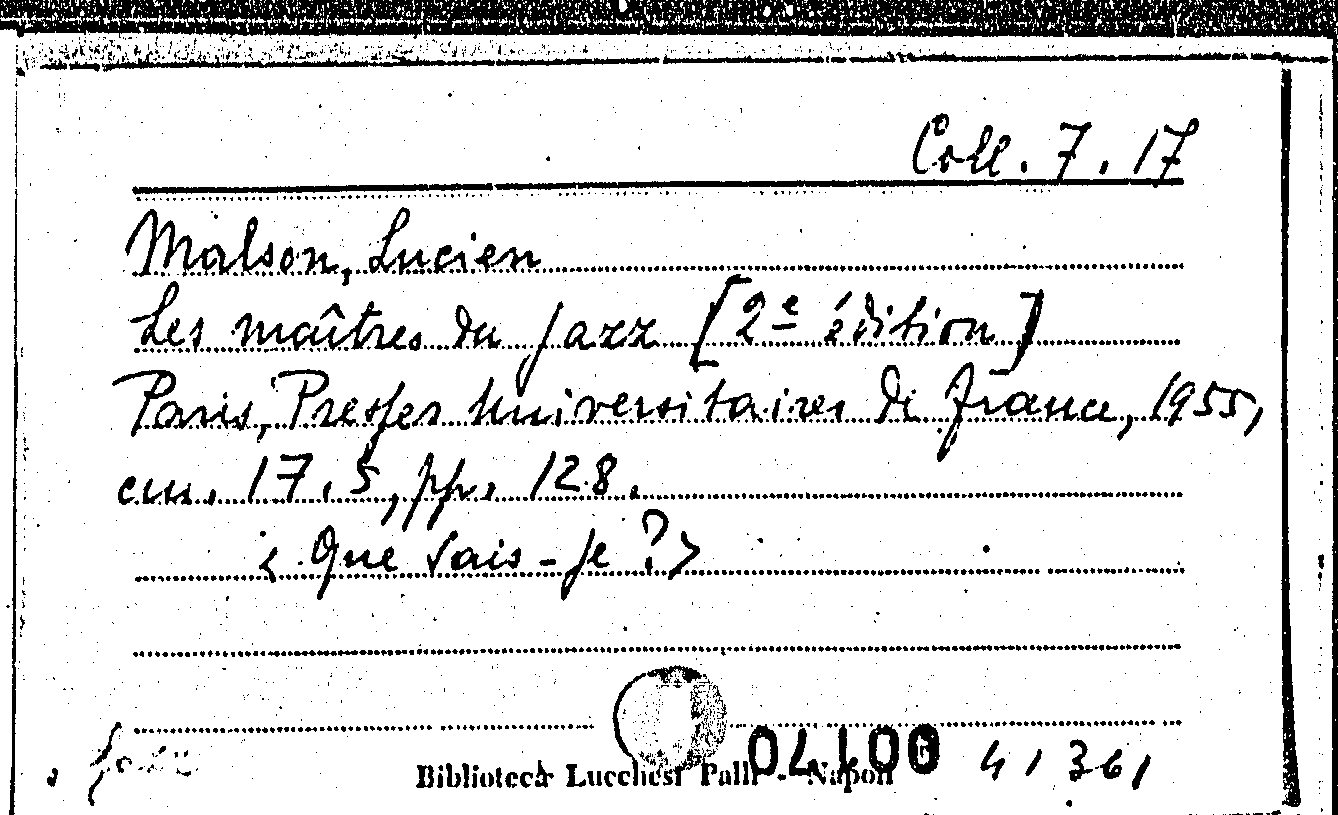 Coll. 7. 17
Malson, Lucien
Les maîtres du jazz [2e édition]
Paris, Presses Universitaires de France, 1955,
cm. 17.5, pp. 128.
< Que sais-je ?>
Biblioteca Lucchesi Palli - Napoli
41361